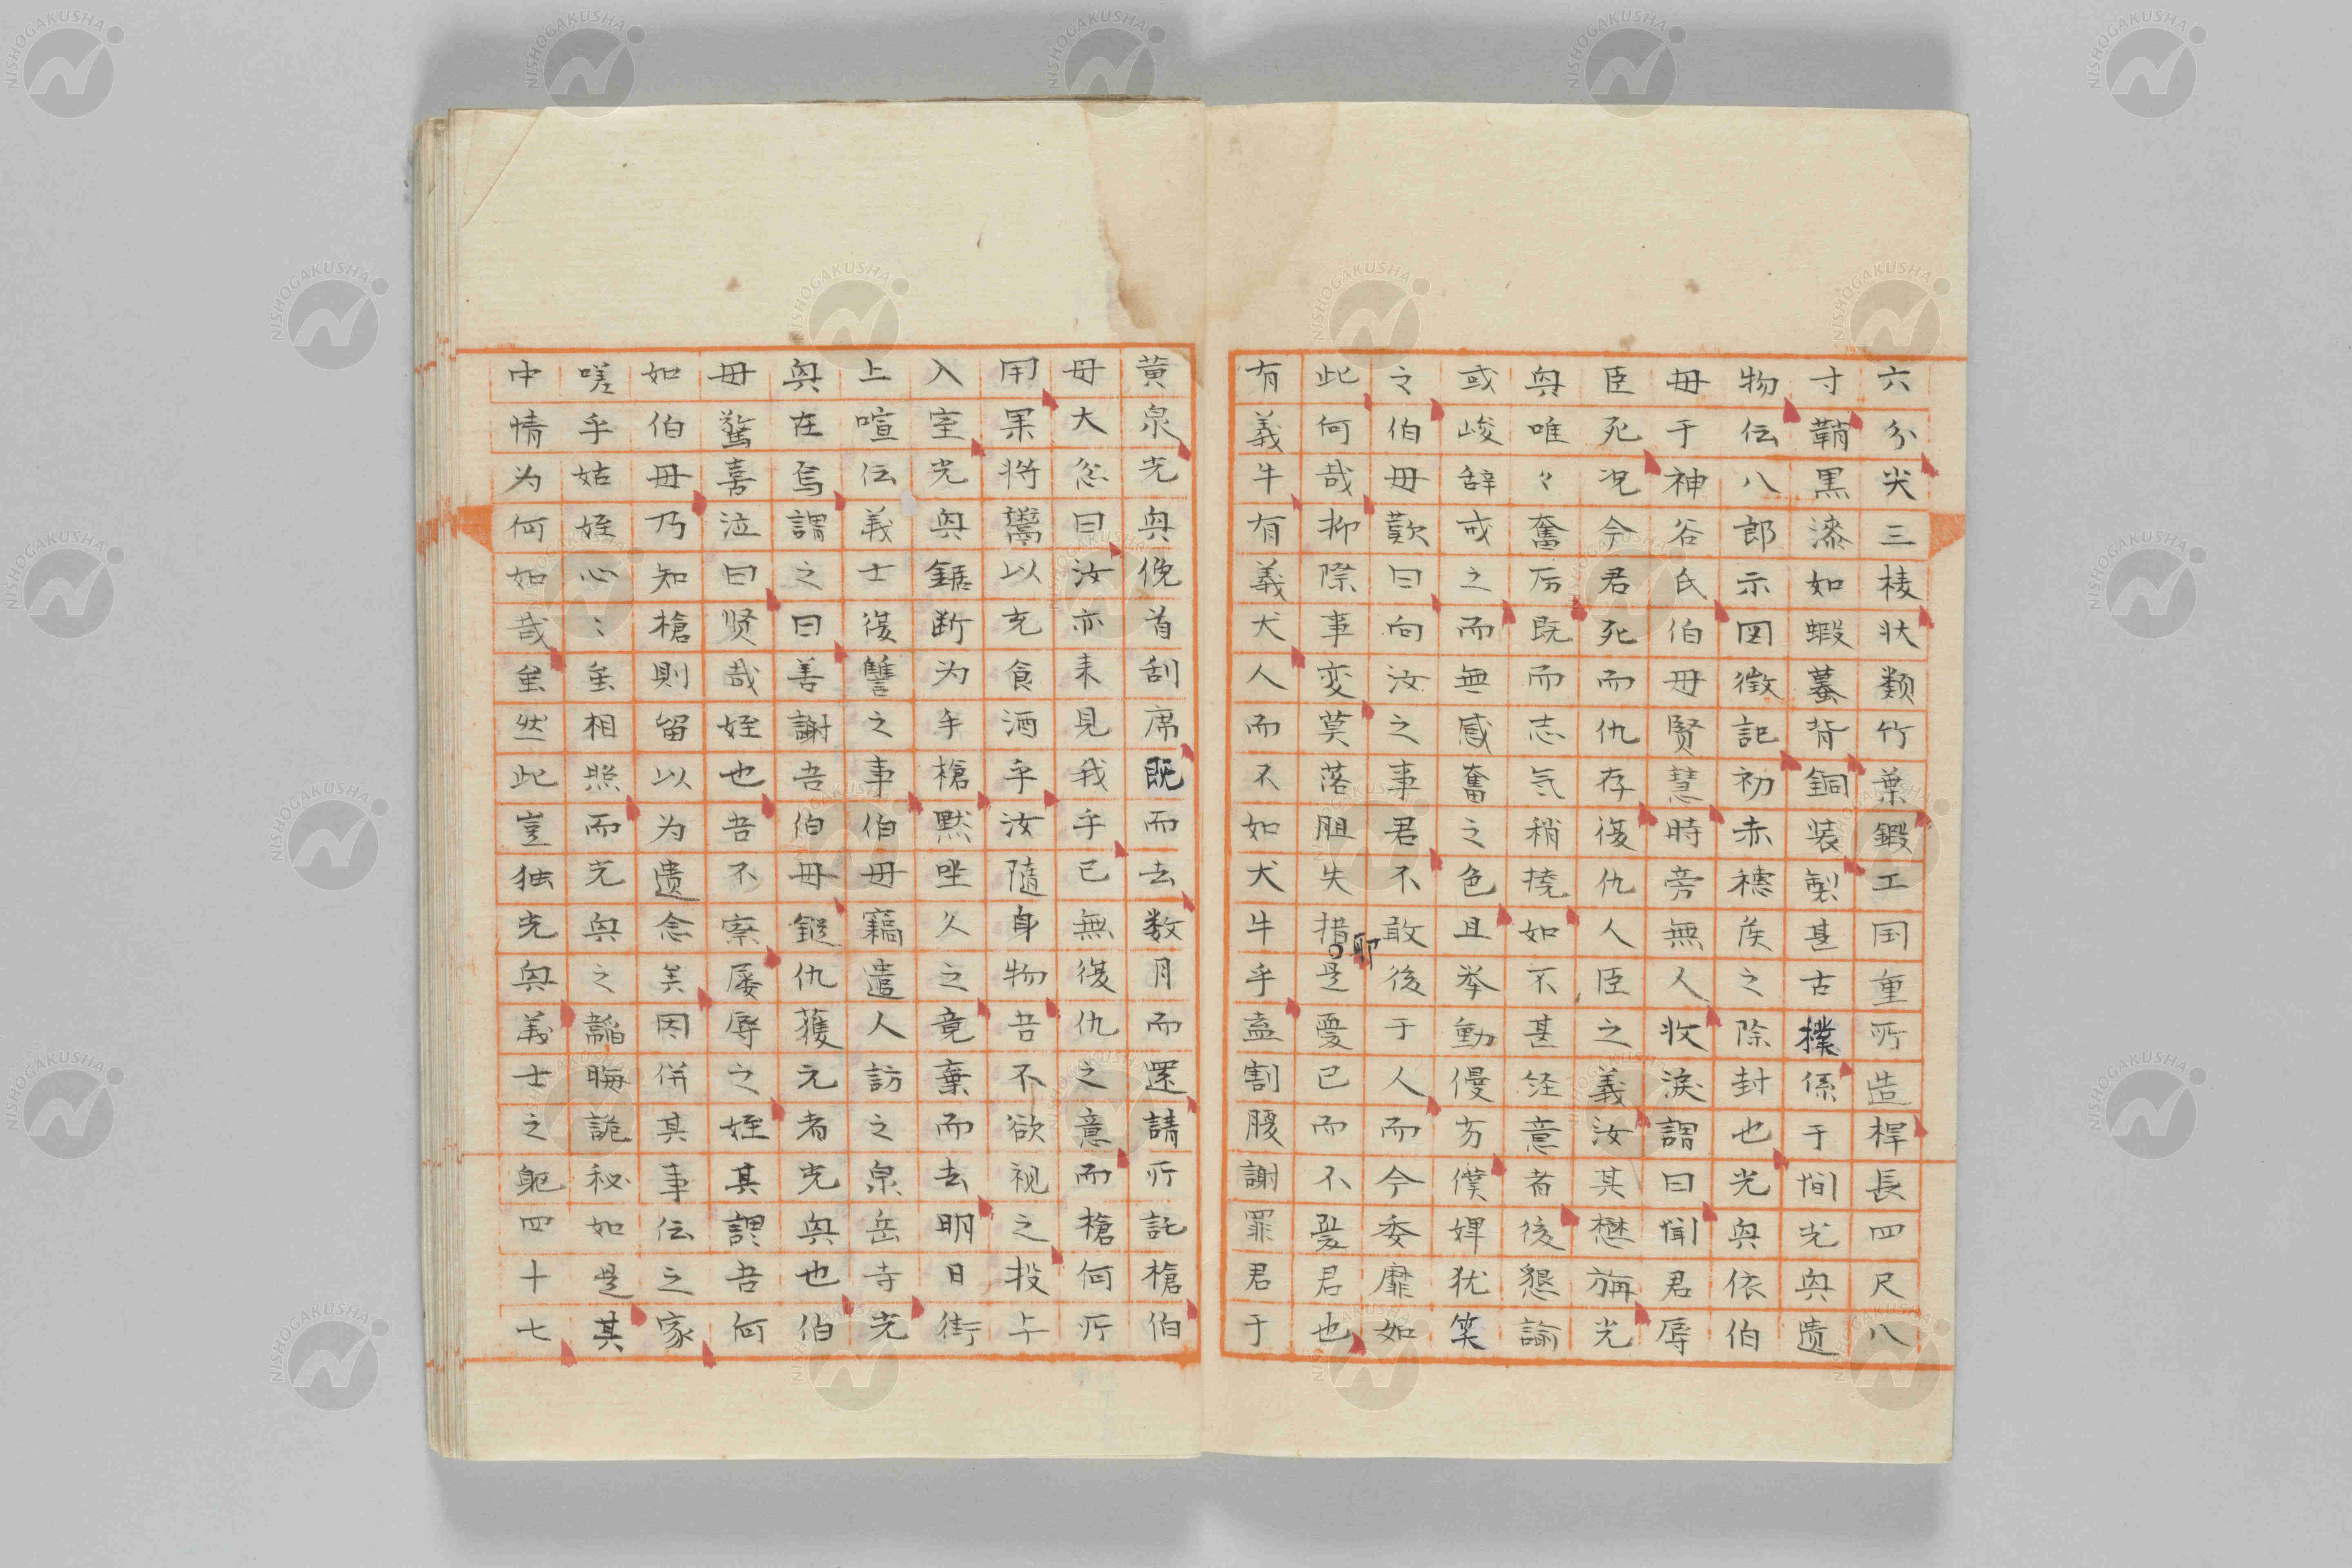 六分尖三棱状類竹葉鍛工国重所造桿長四尺八
寸鞘黒漆如蝦蟇背銅装製甚古樸係于間光與遗
物伝八郎示図徴記初赤穂侯之除封也光與依伯
母于神谷氏伯母賢慧時旁無人收淚謂曰聞君辱
臣死况今君死而仇存復仇人臣之義汝其懋旃光
與唯々奮厉既而志気稍撓如不甚经意者後懇諭
或峻辞戒之而無感奮之色且举動僈芴僕婢犹笑
之伯母歎曰向汝之事君不敢後于人而今委靡如
此何哉抑際事変莫落胆失措耶是憂已而不爱君也
有義牛有義犬人而不如犬牛乎盍割腹謝罪君于
黄泉光與俛首刮席既而去数月而還請所託槍伯
母大忿曰汝亦来見我乎已無復仇之意而槍何所
用果将鬻以充食酒乎汝隨身物吾不欲视之投上
入室光與鋸断为手槍黙坐久之竟棄而去明日街
上喧伝義士復讐之事伯母竊遣人訪之泉岳寺光
與在焉謂之曰善謝吾伯母鎚仇獲元者光與也伯
母驚喜泣曰贤哉姪也吾不察屡辱之姪其謂吾何
如伯母乃知槍則留以为遗念矣因併其事伝之家
嗟乎姑姪心〻虽相照而光與之韜晦詭秘如是其
中情为何如哉虽然此豈独光與義士之躯四十七